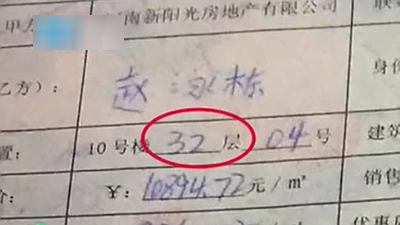 甲方
南新阳光房地产有限公司
联
乙方）：
赵 栋
身份
置：
10号楼 32 层 04 号
建筑
价：
￥：10894.72元/㎡
销售
优惠